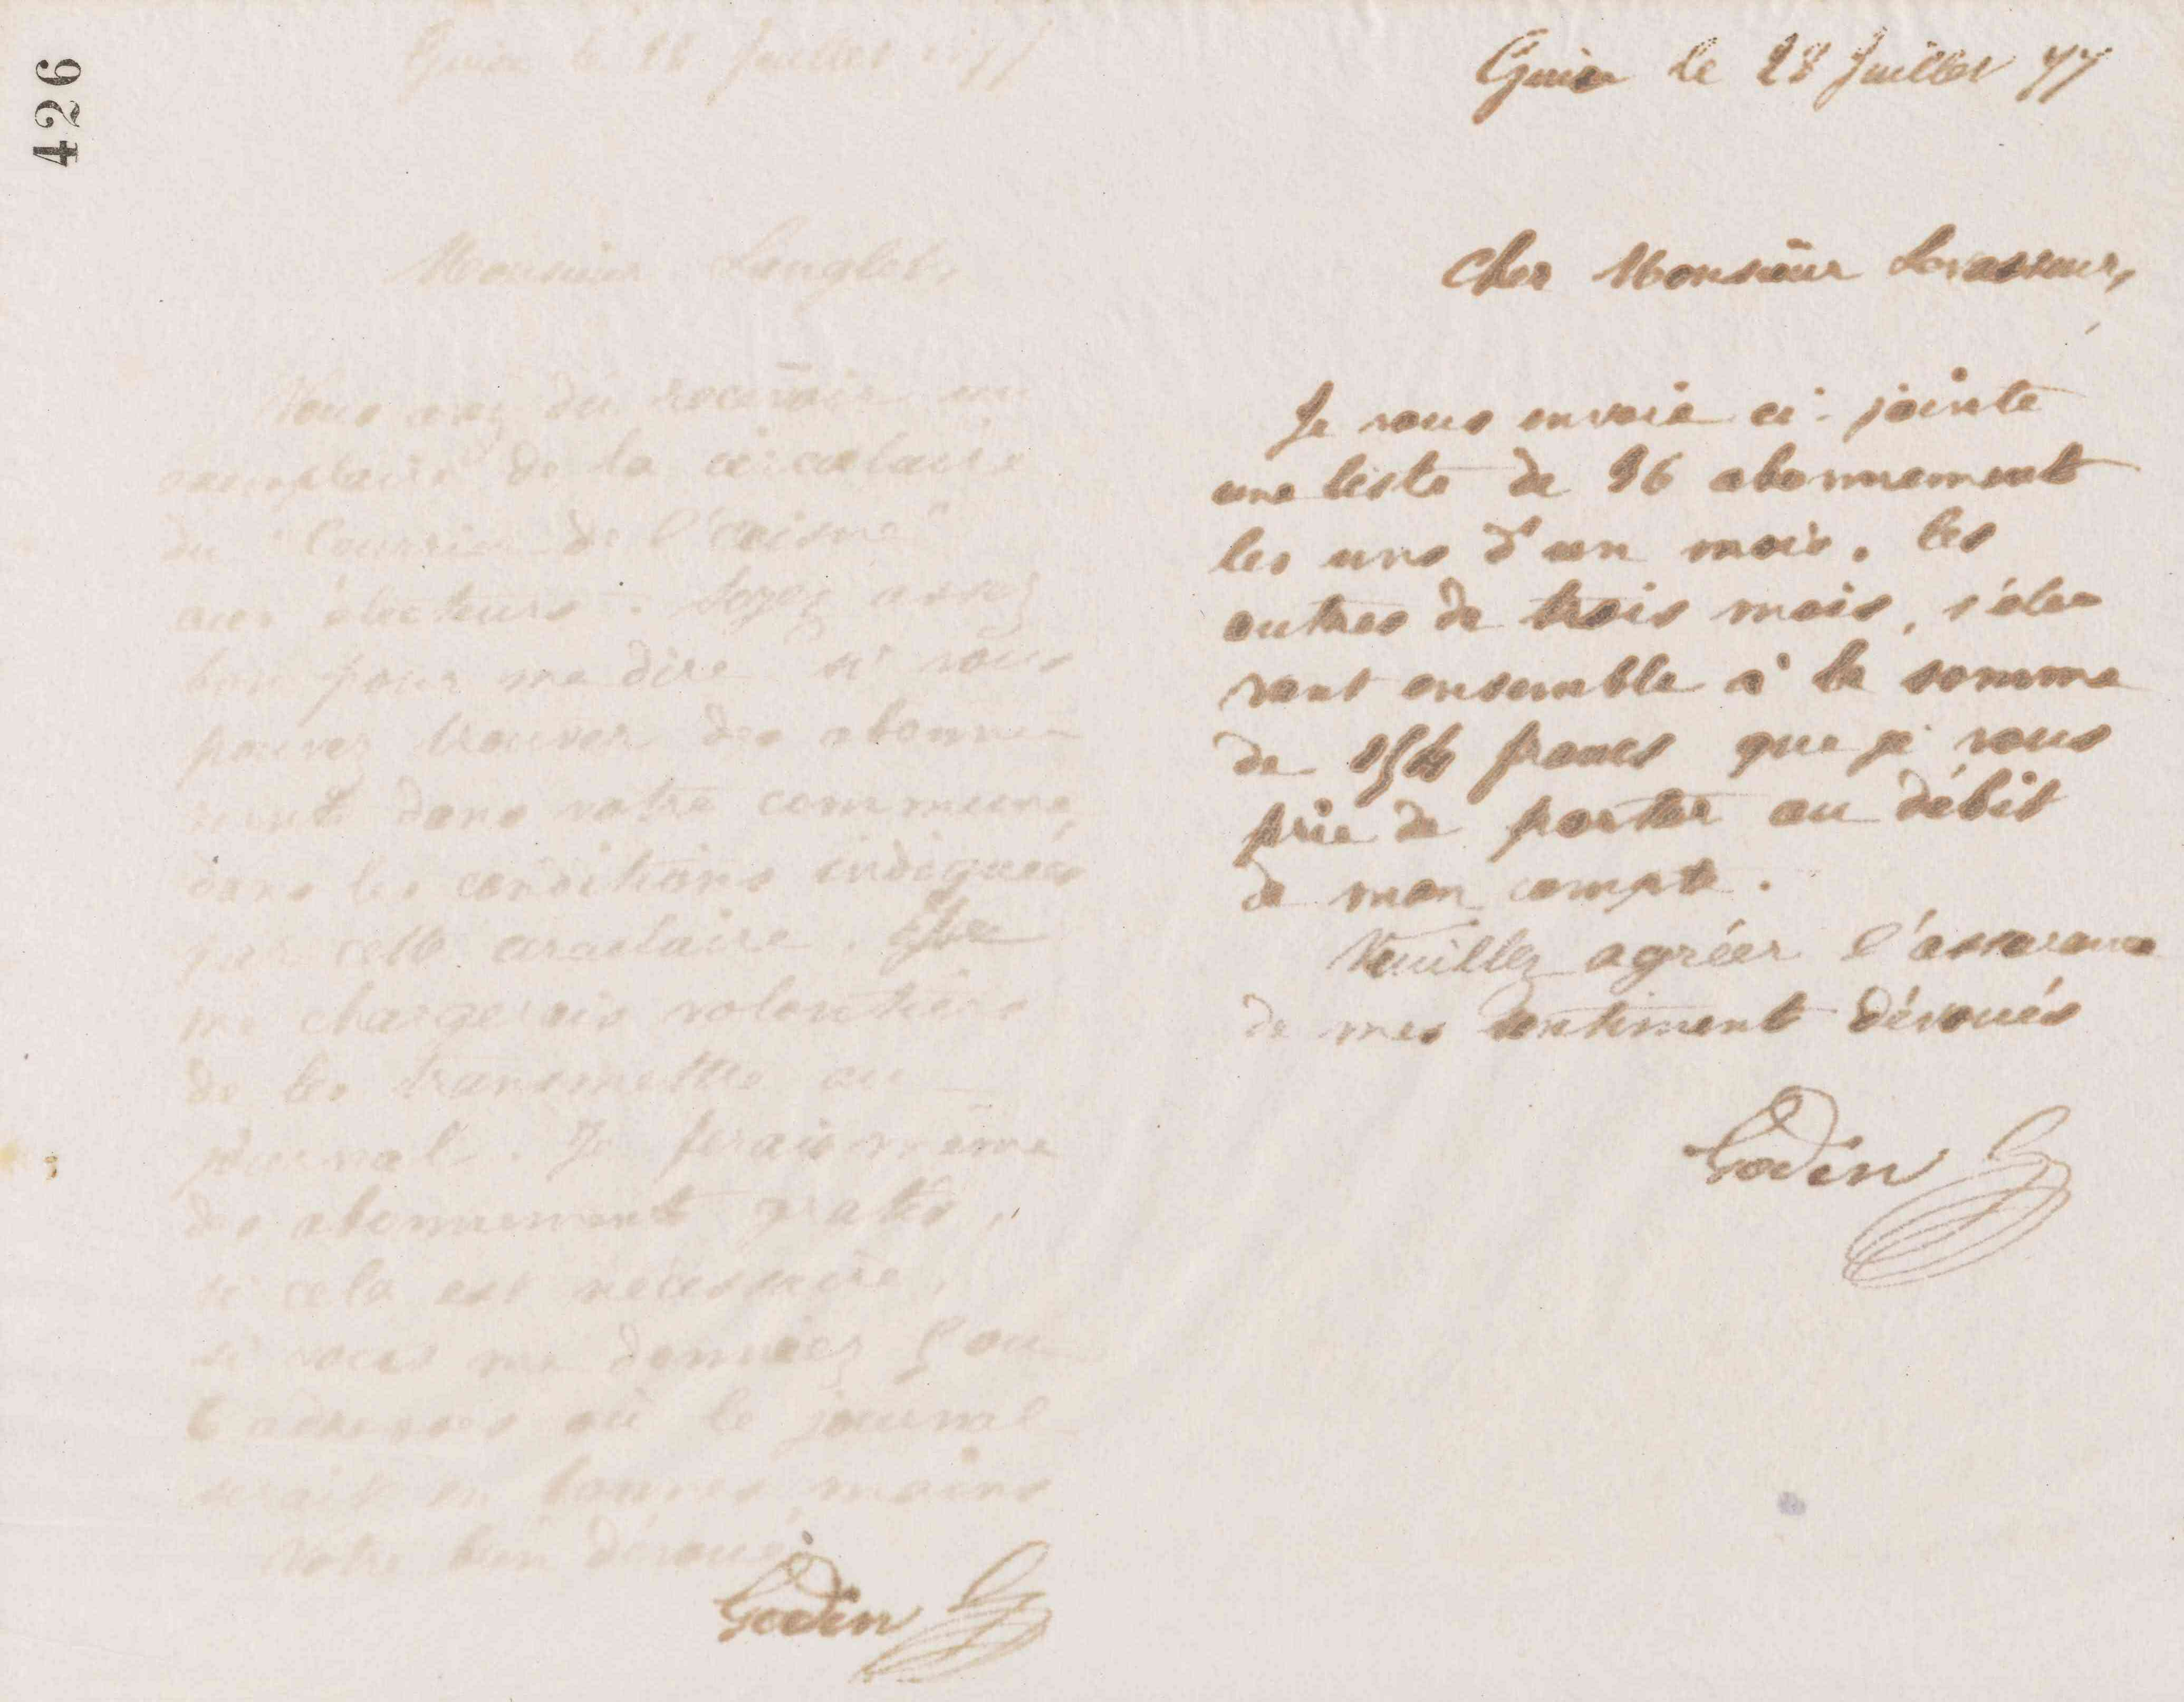 426
Guise le 28 Juillet 1877
Monsieur Langlet,
Vous avez dû recevoir un
exemplaire de la circulaire
du "Courrier de l'aisne"
aux électeurs. Soyez assez
bon pour me dire si vous
pouvez trouver des abonne-
ments dans votre commune,
dans les conditions indiquées
par cette circulaire. Je
me chargerais volontiers
de les transmettre au
journal. Je ferais même
des abonnements gratis,
si cela est nécessaire,
si vous me donniez 5 ou
6 adresses où le journal
serait en bonnes mains
Votre bien dévoué
Godin
Guise le 28 Juillet 77
Cher Monsieur Levasseur,
Je vous envoie ci-jointe
une liste de 36 abonnements
les uns d'un mois, les
autres de trois mois, s'éle-
vant ensemble à la somme
de 154 francs que je vous
prie de porter au débit
de mon compte.
Veuillez agréer l'assurance
de mes sentiments dévoués
Godin